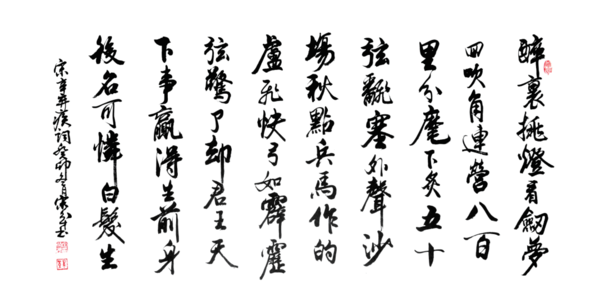 醉裏挑燈看劍夢
回吹角連營八百
里分麾下炙五十
弦翻塞外聲沙
場秋點兵馬作的
盧飛快弓如霹靂
弦驚了却君王天
下事贏得生前身
後名可憐白髮生
宋辛弃疾詞癸卯